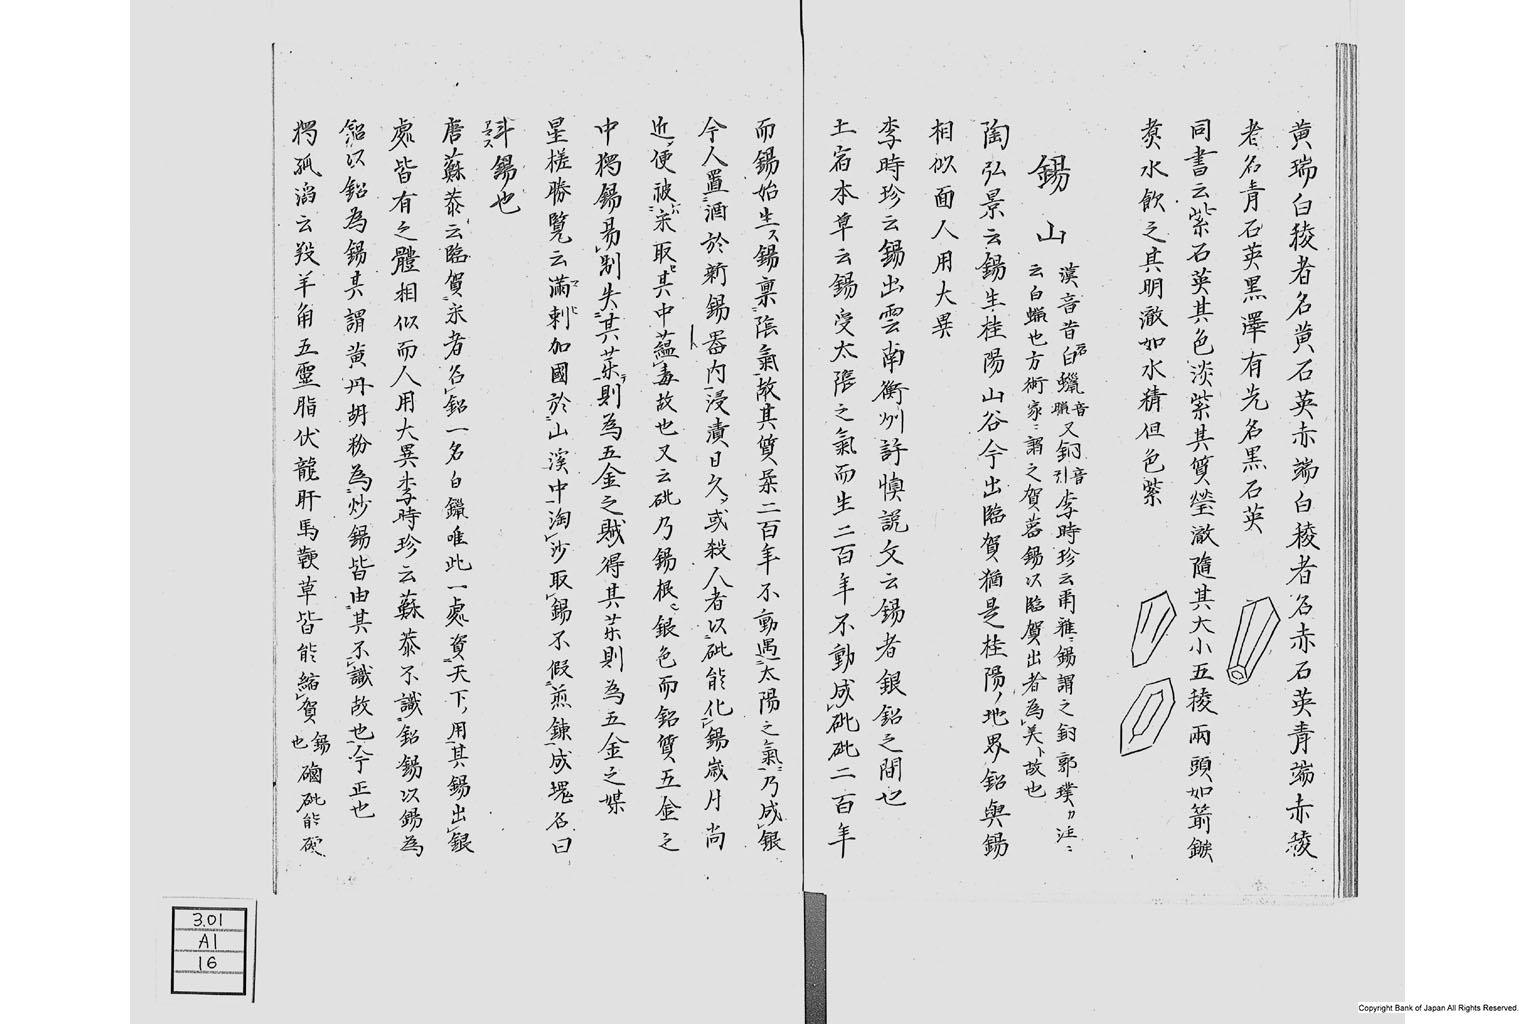 黄端白稜者名黄石英赤端白稜者名赤石英青端赤稜
者名青石英黒澤有光名黒石英
同書云紫石英其色淡紫其質瑩澈隨其大小五稜兩頭如箭鏃
煑水飲之其明澈如水精但色紫
錫山
漢音昔白名鑞音臘又釖音引李時珍云爾雅錫謂之釖郭璞注
云白鑞也方術家謂之賀蓋錫以臨賀出者為美故也
陶弘景云錫生桂陽山谷今出臨賀猶是桂陽地界鉛與錫
相似而人用大異
李時珍云錫出雲南衡州許慎説文云錫者銀鉛之間也
土宿本草云錫受太陰之氣而生二百年不動成砒砒二百年
而錫始生錫稟陰氣故其質柔二百年不動遇太陽之氣乃成銀
今人置酒於新錫器内浸漬日久或殺人者以砒能化錫歳月尚
近便被采取其中蘊毒故也又云砒乃錫根銀色而鉛質五金之
中獨錫易制失其薬則為五金之賊得其薬則為五金之媒
星槎勝覽云滿剌加國於山溪中淘沙取錫不假煎錬成塊名曰
斗錫也
唐蘇恭云臨賀采者名鉛一名白鑞唯此一處資天下用其錫出銀
處皆有之體相似而人用大異李時珍云蘇恭不識鉛錫以錫為
鉛以鉛為錫其謂黄丹胡粉為炒錫皆由其不識故也今正也
獨孤滔云羖羊角五靈脂伏龍肝馬鞭草皆能縮賀錫也硇砒能硬
3.01
A1
16
Copyright Bank of Japan All Rights Reserved.